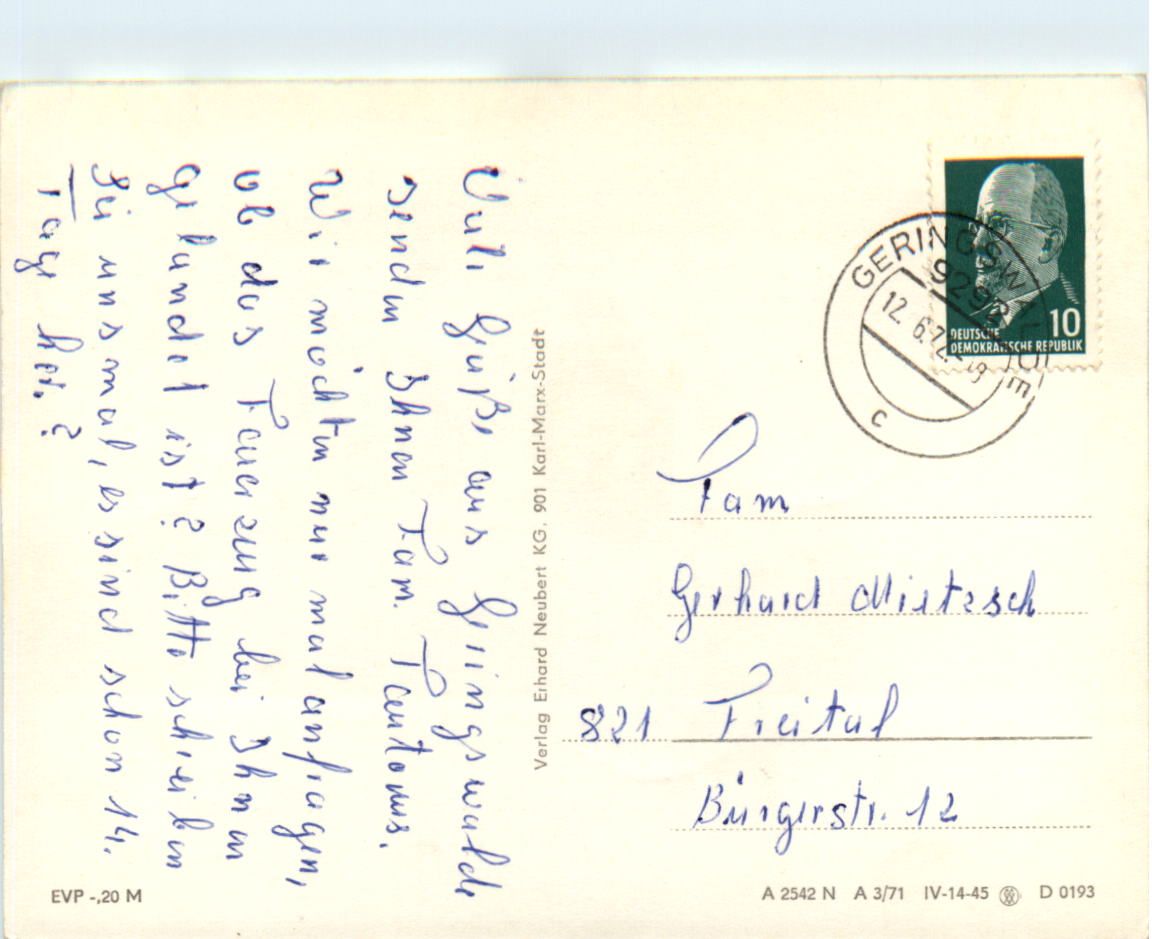 Viele Grüße aus Geringswalde
senden Ihnen Fam. Tautorus.
Wir möchten nur mal anfragen,
ob das Feuerzeug bei Ihnen
gelandet ist? Bitte schreiben
Sie uns mal, es sind schon 14.
Tage her.?
Verlag Erhard Neubert KG, 901 Karl-Marx-Stadt
GERINGSWALDE
9292
12. 6.72.
c
10
DEUTSCHE
DEMOKRATISCHE REPUBLIK
Fam
Gerhard Mietzsch
821 Freital
Bürgerstr. 12
EVP -,20 M
A 2542 N A 3/71 IV-14-45 D 0193